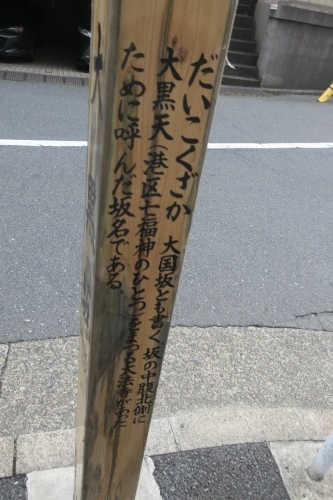 だいこくざか
大国坂とも書く、坂の中腹北側に
大黒天(港区七福神のひとつ)をまつる大法寺があった
ために呼んだ坂名である。